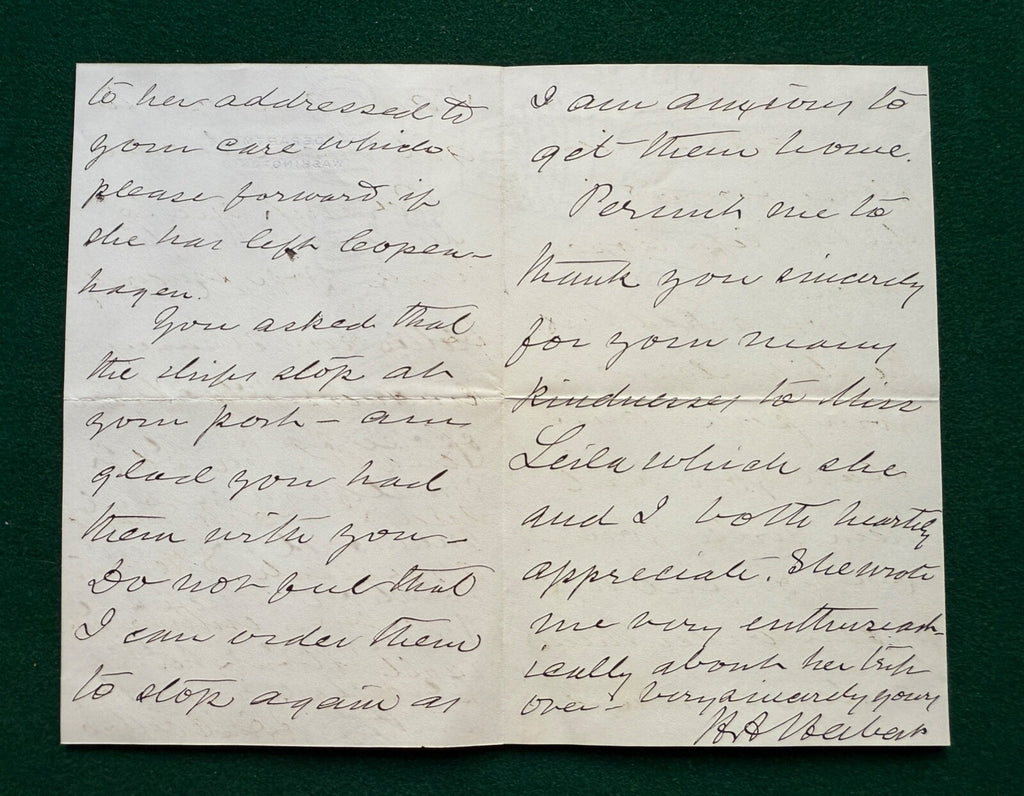 to her addressed to
your care which
please forward if
she has left Copen-
hagen.
You asked that
the ships stop at
your port - am
glad you had
them with you -
Do not feel that
I can order them
to stop again as
I am anxious to
get them home.
Permit me to
thank you sincerely
for your many
kindnesses to Miss
Leila which she
and I both heartily
appreciate. She wrote
me very enthusiast-
ically about her trip
over - Very sincerely yours
H A Herbert